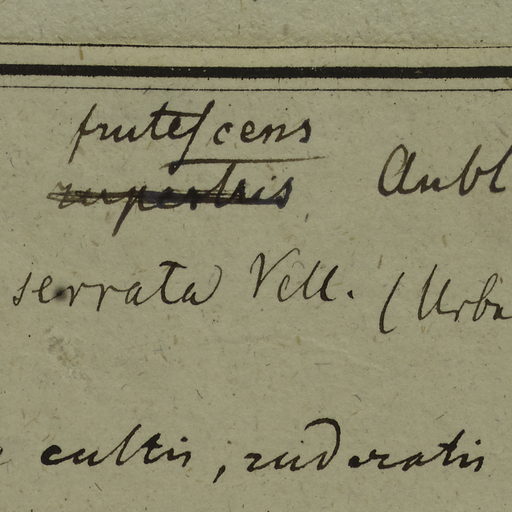 frutescens
rupestris Aubl
serrata Vell. (Urba
cultis, ruderatis